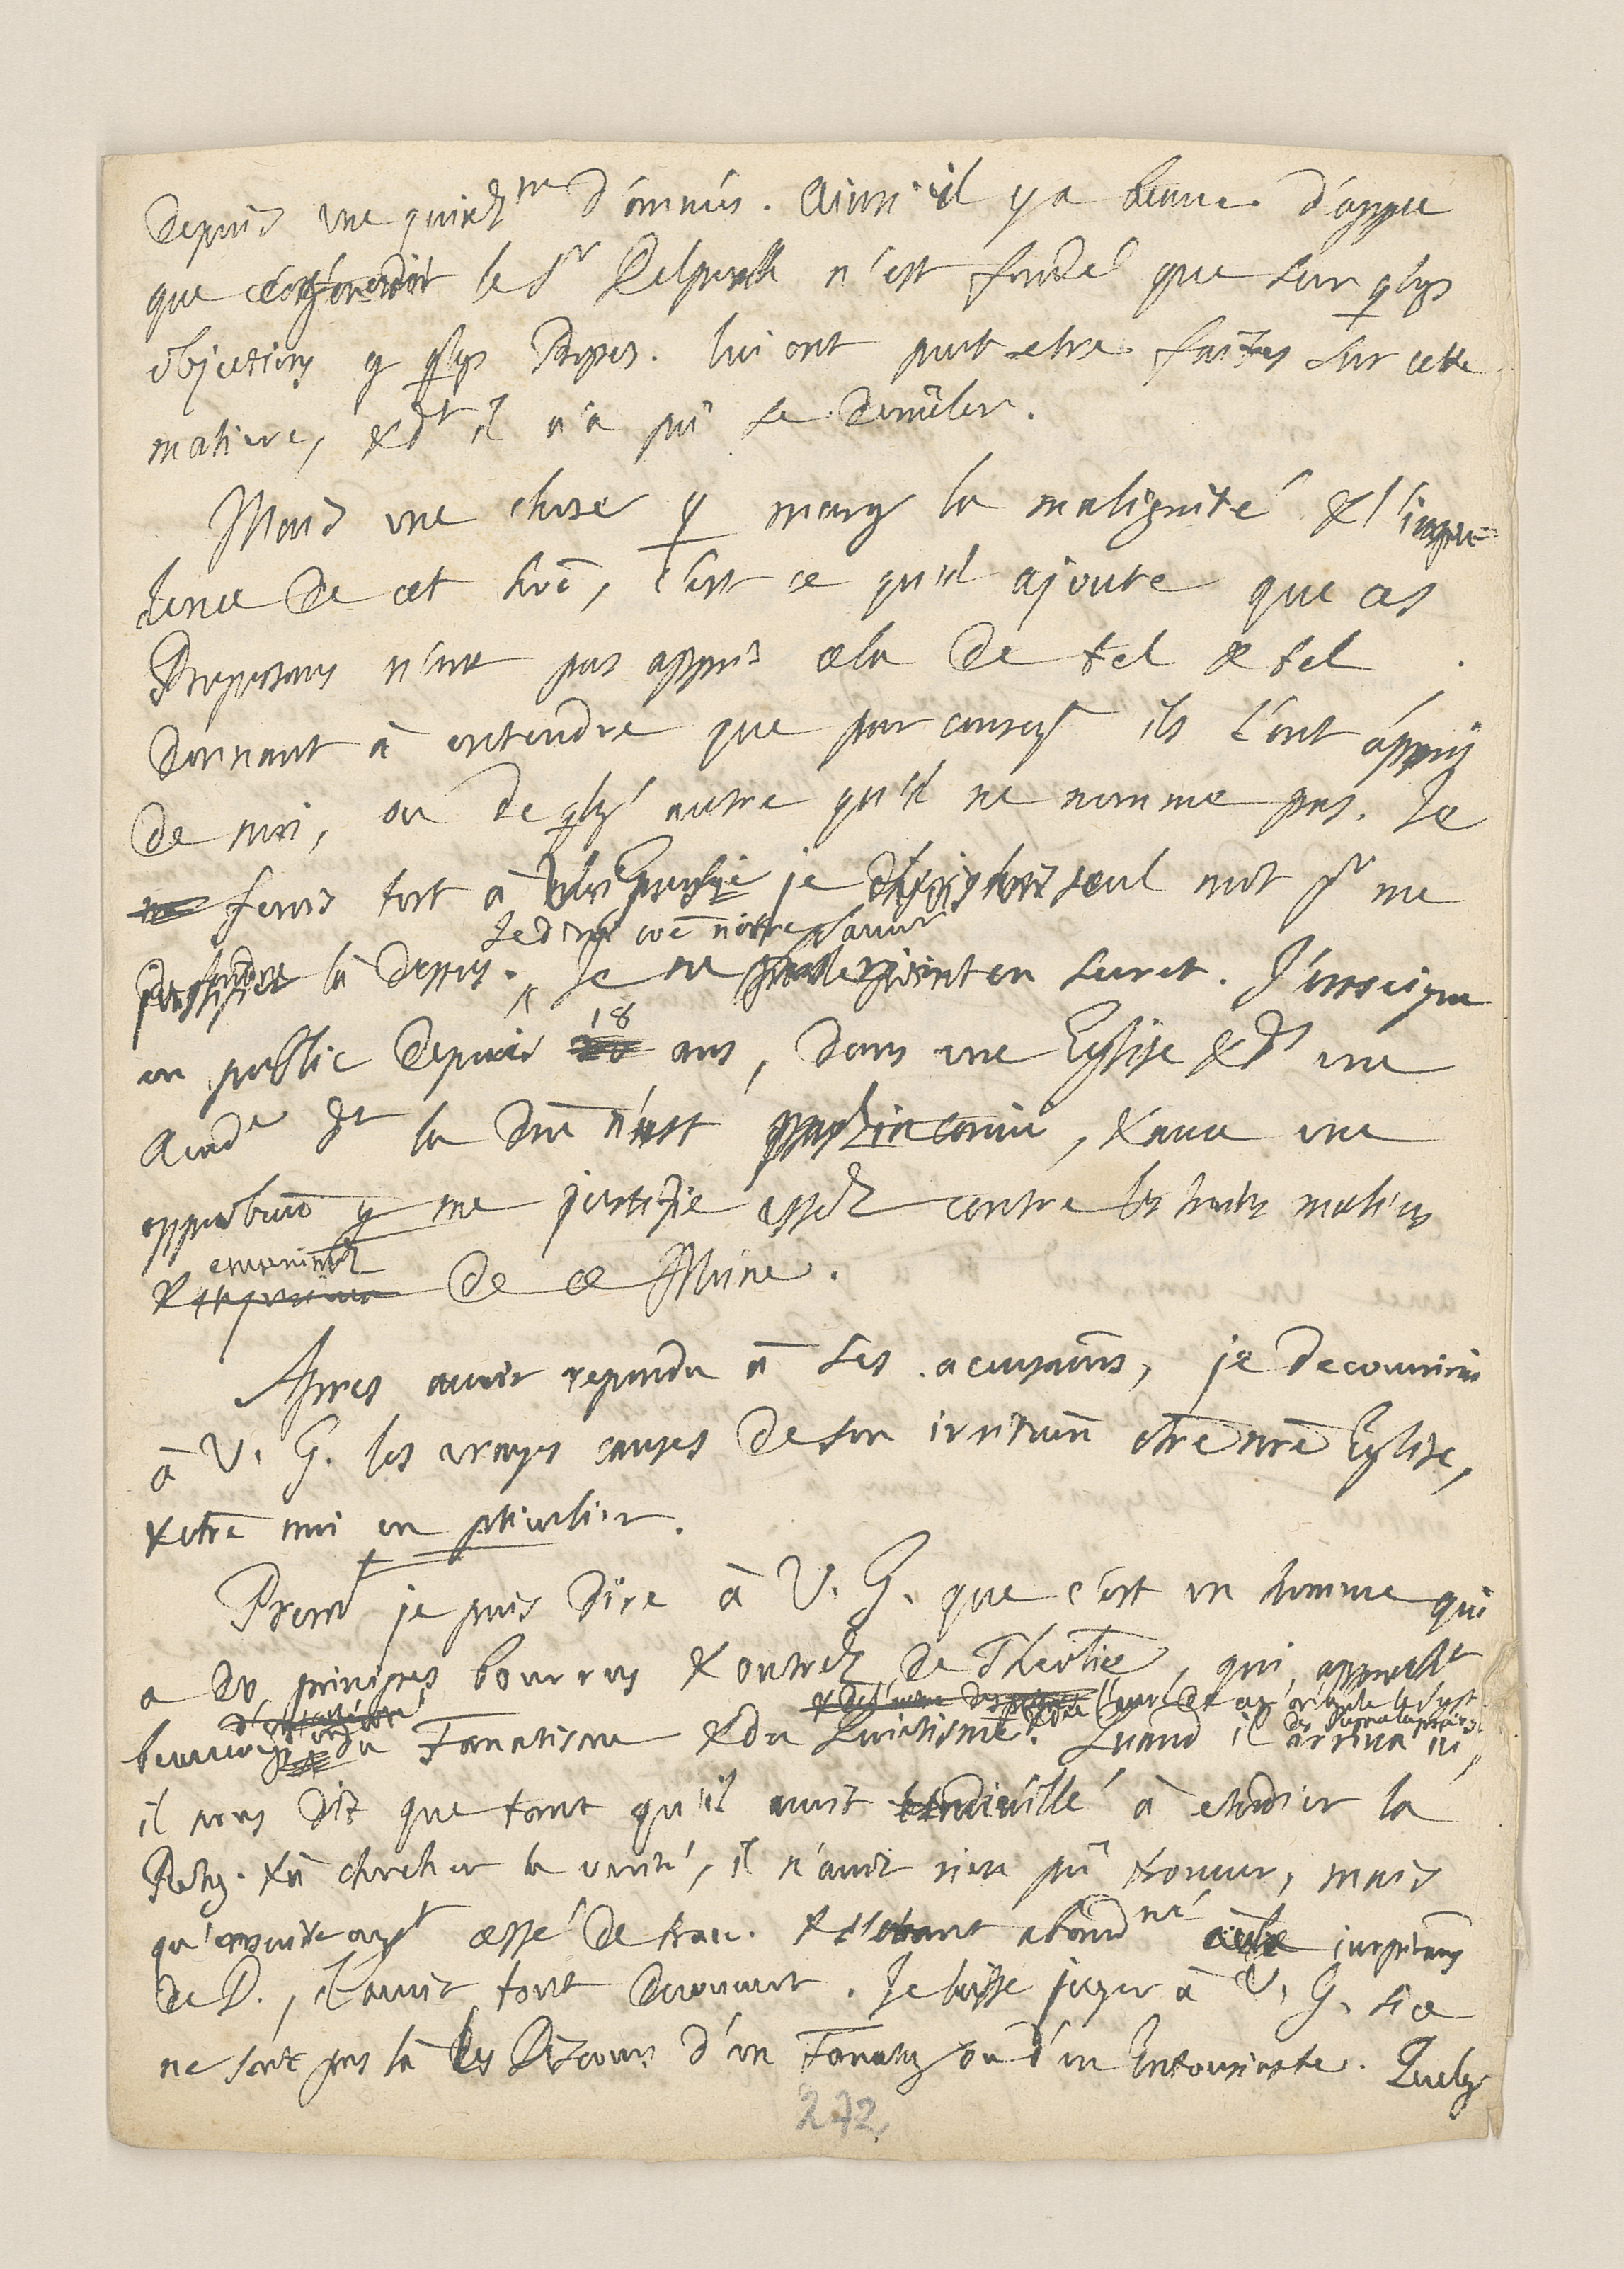 depuis une quinz^ne d'années. Ainsi il y a beauc. d'appce
que le S^r Delpuech n'est fondé que sur qlqs
objections q qlqs Propos. lui ont peut etre faites sur cette
matiere, & dt il n'a pû se demêler.
Mais une chose q marq la malignité & l'impu-
dence de cet hoe, c'est ce qu'il ajoute que ces
Proposans n'ont pas appris cela de tel & tel.
donnant à entendre que par conseqt ils l'ont appris
de moi, ou de qlq autre qu'il ne nomme pas. Je
ferois tort à si je seul mot pr me
là dessus. Je dirai coe nôtre Sauveur Je ne point en secret. J'enseigne
en public depuis 18 ans, dans une Eglise & ds une
Acade dt la Dne n'est pas inconnue, & avec une
approbaon q me justifie assez contre les traits malins
& envenimez de ce Moine.
Apres avoir repondu à ses accusaons, je decouvrirai
à V. G. les vrayes causes de son irritaon ctre nre Eglise,
& ctre moi en pticulier.
Premt je puis dire à V. G. que c'est un homme qui
a des principes bourrus & outrez de Theolie, qui approcht
beaucoup du Fanatisme & du Quietisme. Quand il arriva ici,
il nous dit que tant qu'il avoit travaillé à etudier la
Relig. & à chercher la verité, il n'avoit rien pû trouver, mais
qu'ensuite ayt cessé de trav. & s'étant abandné aux inspiraons
de D., il avoit tout decouvert. Je laisse juger à V. G. si ce
ne sont pas là les Discours d'un Fanatiq ou d'un Entousiaste. Quelq
272